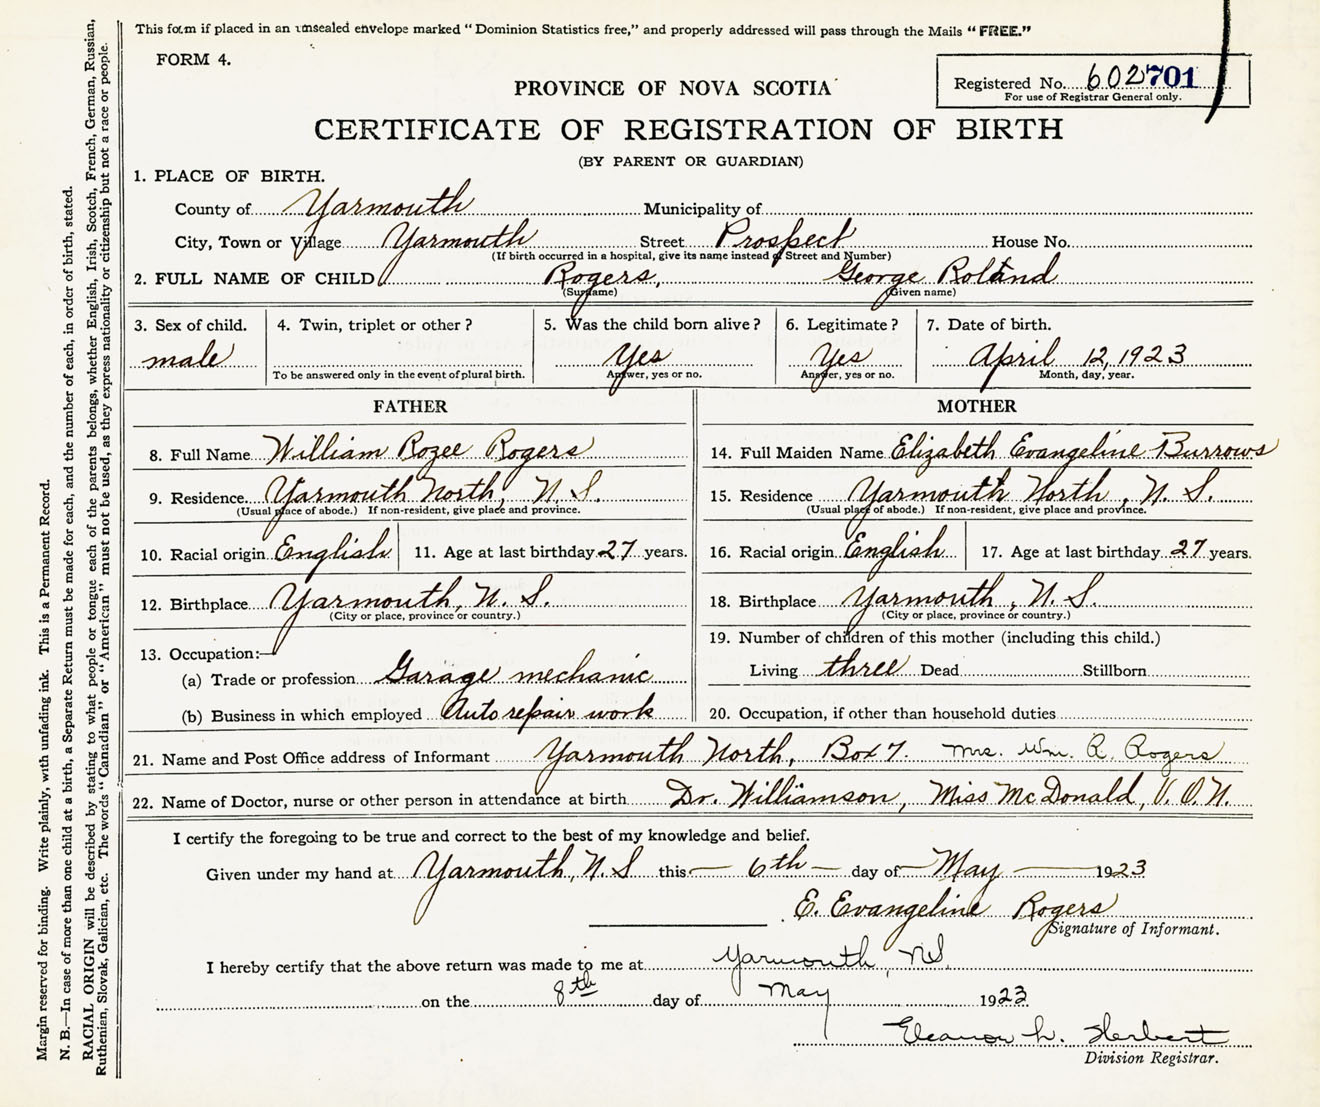 This form if placed in an unsealed envelope marked "Dominion Statistics free," and properly addressed will pass through the Mails "FREE."
FORM 4.
Registered No. 602701
For use of Registrar General only.
PROVINCE OF NOVA SCOTIA
CERTIFICATE OF REGISTRATION OF BIRTH
(BY PARENT OR GUARDIAN)
1. PLACE OF BIRTH.
County of Yarmouth Municipality of
City, Town or Village Yarmouth Street Prospect House No.
(If birth occurred in a hospital, give its name instead of Street and Number)
2. FULL NAME OF CHILD Rogers, George Roland
(Surname) (Given name)
3. Sex of child. 4. Twin, triplet or other? 5. Was the child born alive? 6. Legitimate? 7. Date of birth.
male Yes Yes April 12, 1923
To be answered only in the event of plural birth. Answer, yes or no. Answer, yes or no. Month, day, year.
FATHER
8. Full Name William Rozee Rogers
9. Residence Yarmouth North, N.S.
(Usual place of abode.) If non-resident, give place and province.
10. Racial origin English 11. Age at last birthday 27 years.
12. Birthplace Yarmouth, N.S.
(City or place, province or country.)
13. Occupation:—
(a) Trade or profession Garage mechanic
(b) Business in which employed Auto repair work
MOTHER
14. Full Maiden Name Elizabeth Evangeline Burrows
15. Residence Yarmouth North, N.S.
(Usual place of abode.) If non-resident, give place and province.
16. Racial origin English 17. Age at last birthday 27 years.
18. Birthplace Yarmouth, N.S.
(City or place, province or country.)
19. Number of children of this mother (including this child.)
Living three Dead Stillborn
20. Occupation, if other than household duties
21. Name and Post Office address of Informant Yarmouth North, Box 7. Mrs. Wm. R. Rogers
22. Name of Doctor, nurse or other person in attendance at birth Dr. Williamson, Miss McDonald, V.O.N.
I certify the foregoing to be true and correct to the best of my knowledge and belief.
Given under my hand at Yarmouth, N.S this 6th day of May 1923
E. Evangeline Rogers
Signature of Informant.
I hereby certify that the above return was made to me at Yarmouth, NS.
on the 8th day of May 1923
Eleanor L. Herbert
Division Registrar.
Margin reserved for binding. Write plainly, with unfading ink. This is a Permanent Record.
N. B.—In case of more than one child at a birth, a Separate Return must be made for each, and the number of each, in order of birth, stated.
RACIAL ORIGIN will be described by stating to what people or tongue each of the parents belongs, whether English, Irish, Scotch, French, German, Russian,
Ruthenian, Slovak, Galician, etc. The words "Canadian" or "American" must not be used, as they express nationality or citizenship but not a race or people.